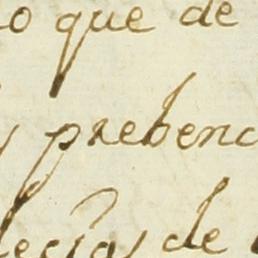 o que de
y prebend
lecia, de